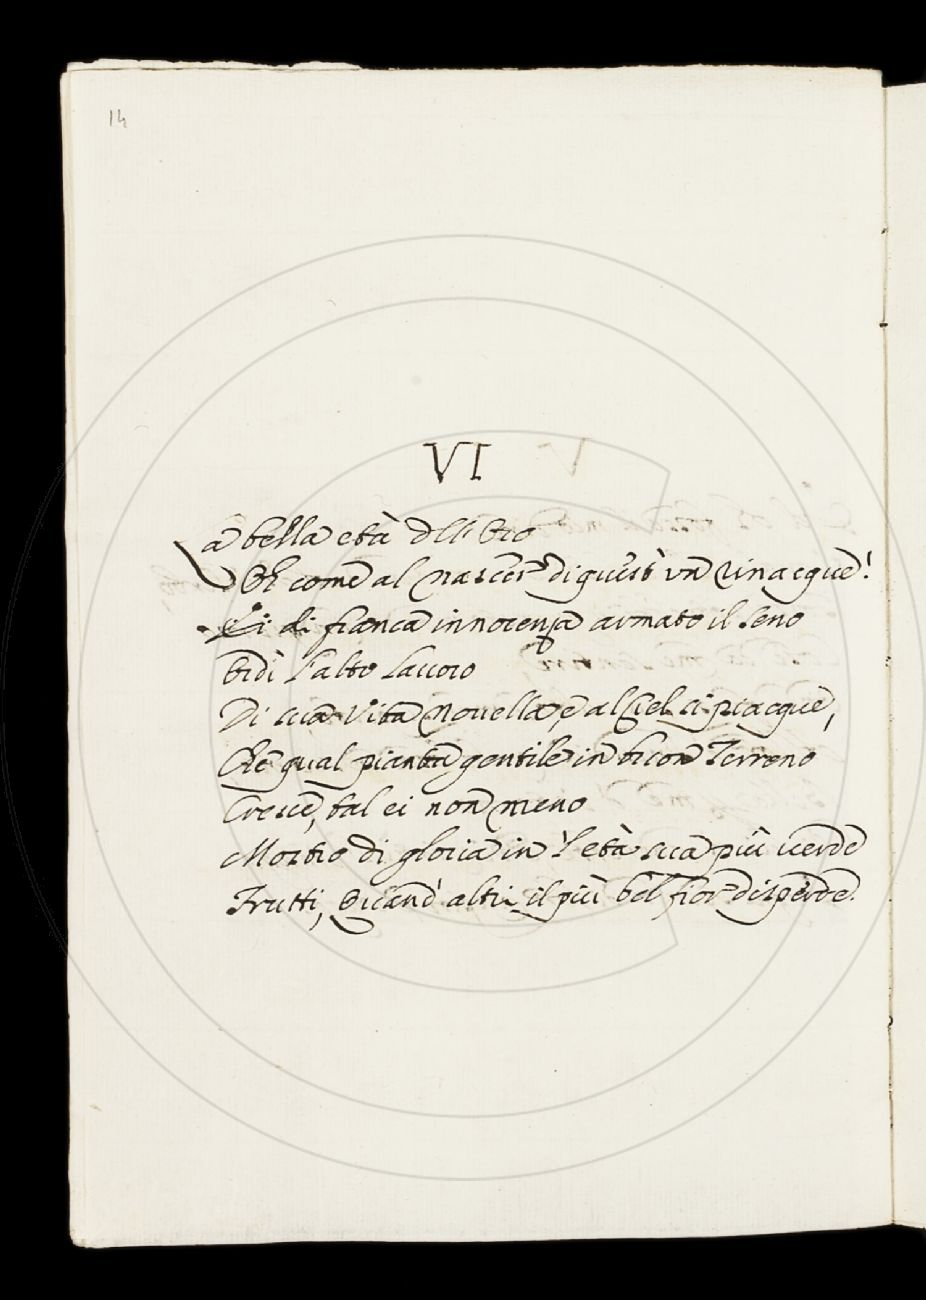 14
VI
La bella età dell'Oro
Oh come al nascer di questi un rinacque!
Ei di franca innocenza armato il seno
Ordì l'alto lavoro
Di sua vita novella, e al Ciel sì piacque,
Che qual pianta gentile in buon Terreno
Cresce, tal ei non meno
Mostrò di gloria in l'età sua più verde
Frutti, quand'altri il più bel fior disperde.